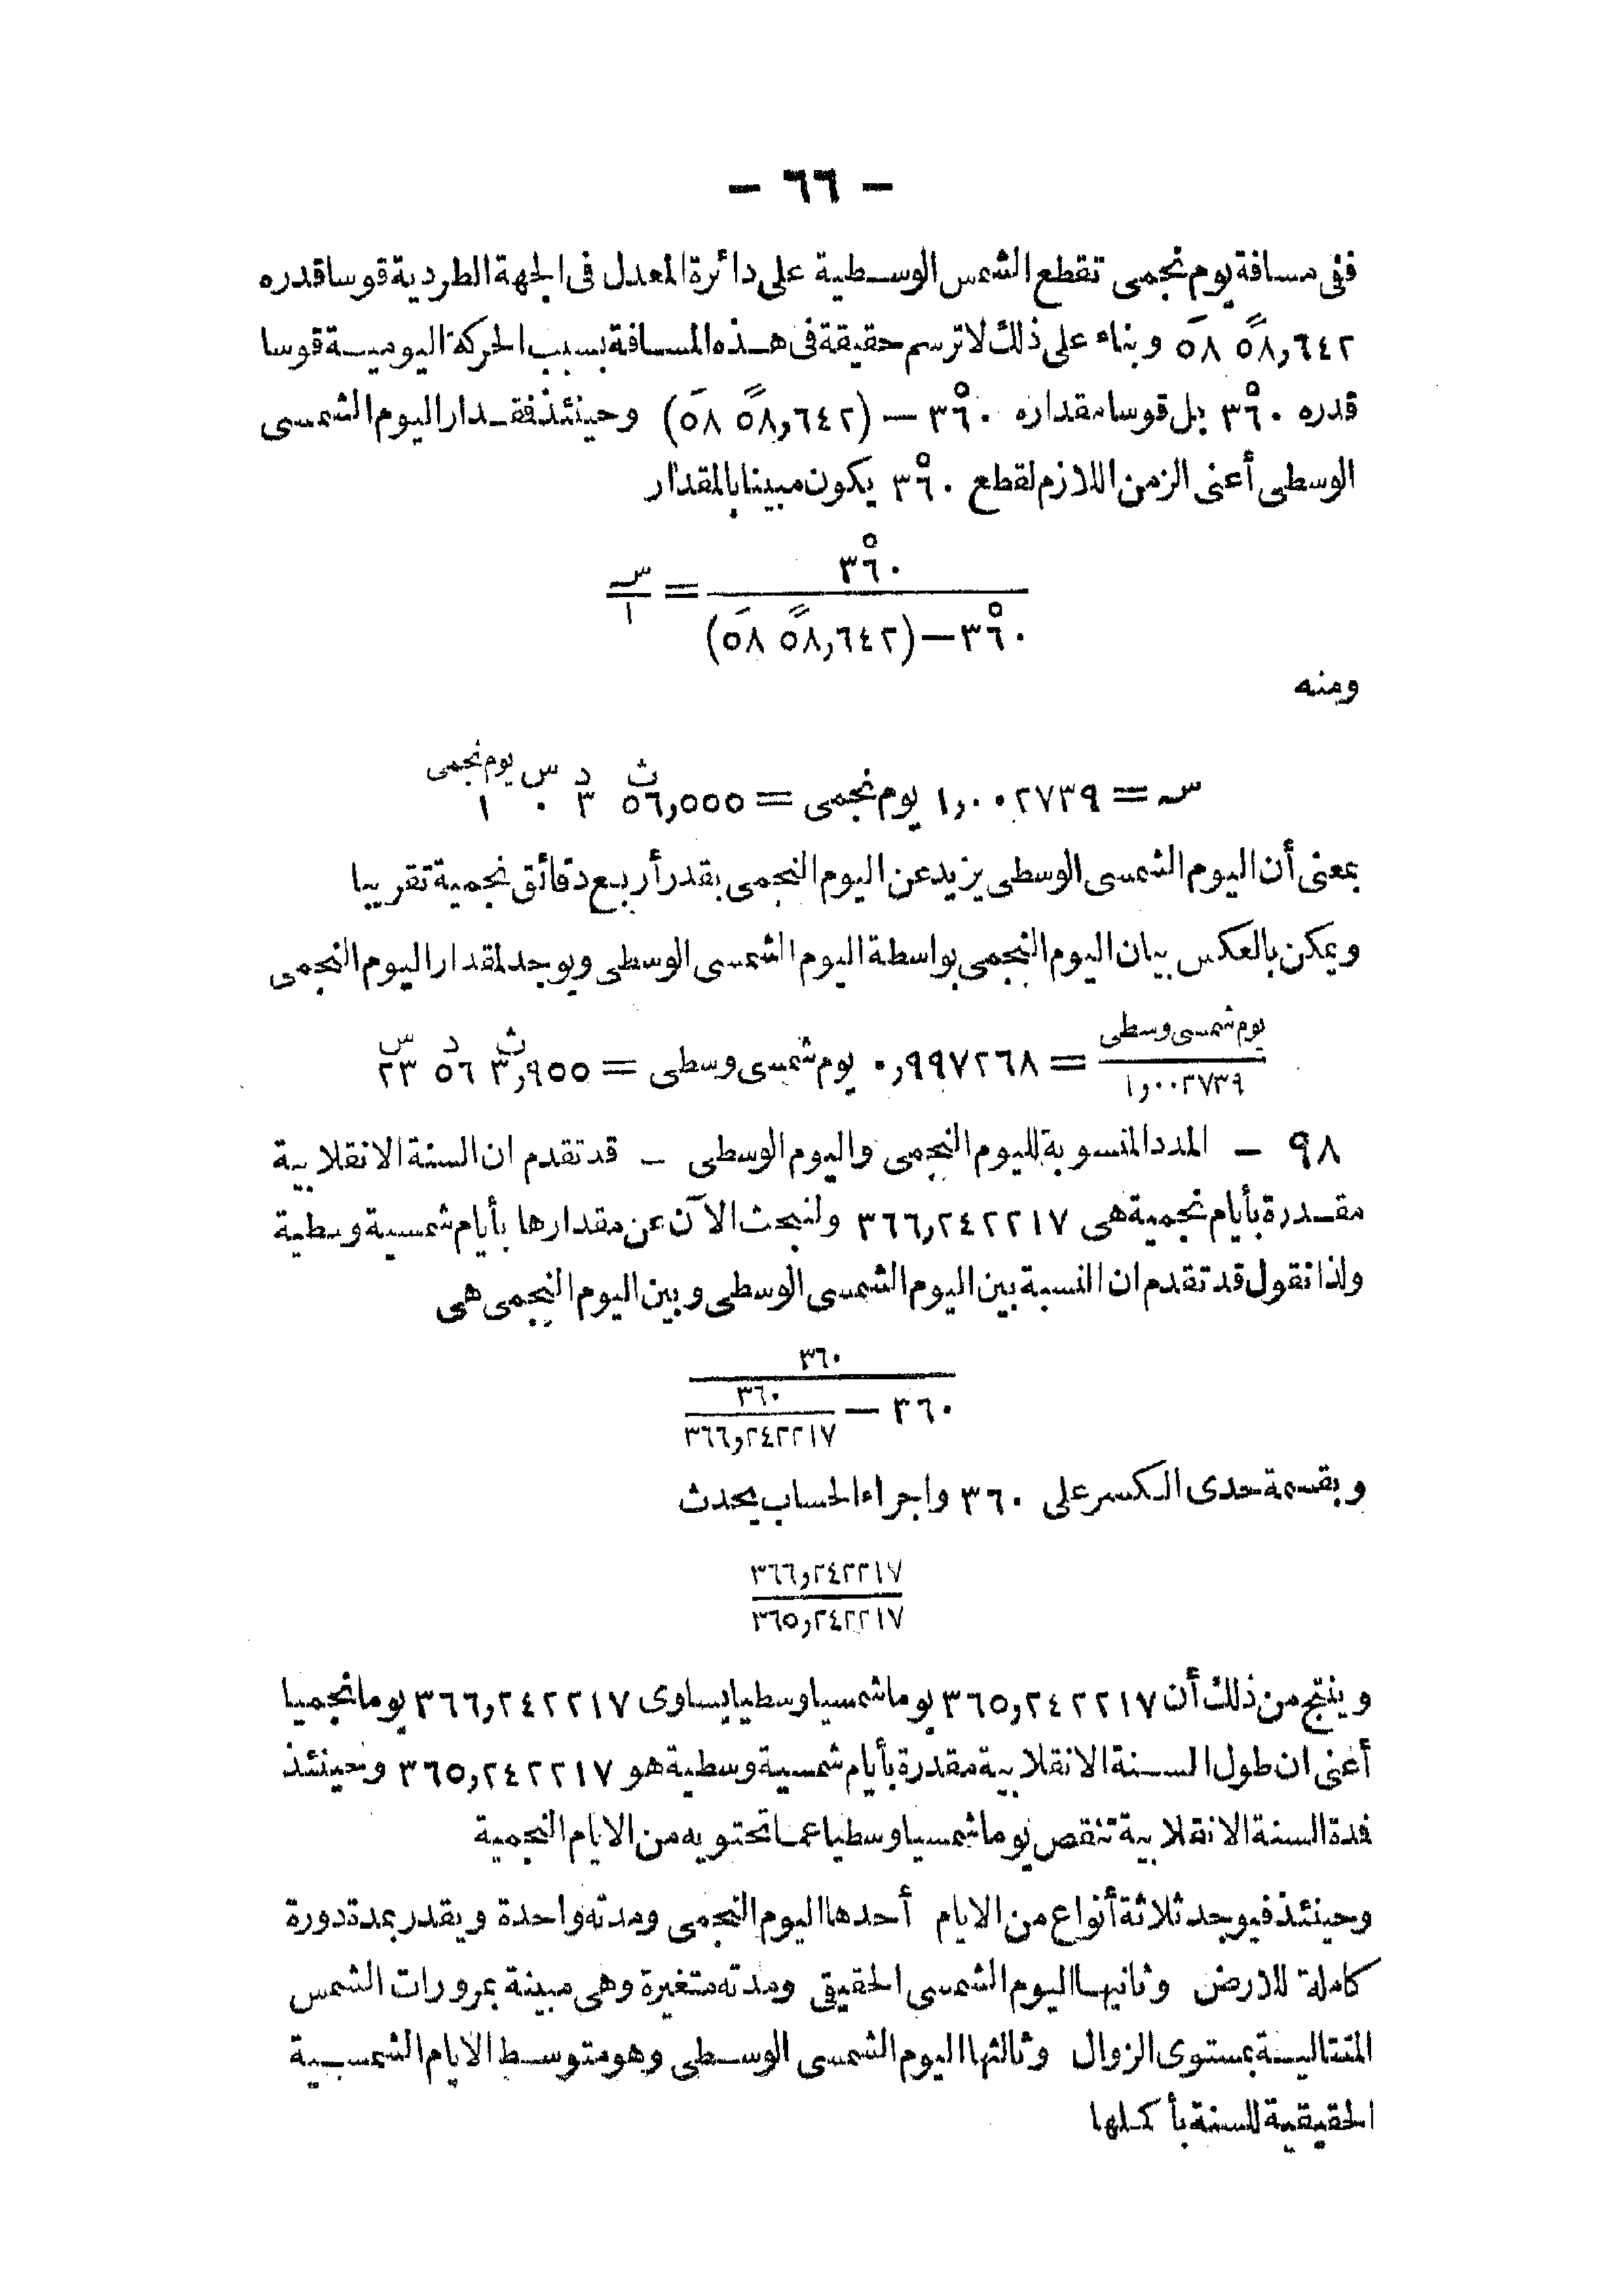 — ٦٦ —
ففى مسافة يوم نجمى تقطع الشمس الوسطية على دائرة المعدل فى الجهة الطردية قوسا قدره
٥٨َ ٥٨ً,٦٤٢ وبناء على ذلك لا ترسم حقيقة فى هذه المسافة بسبب الحركة اليومية قوسا
قدره ٣٦٠° بل قوسا مقداره ٣٦٠° — (٥٨َ ٥٨ً,٦٤٢) وحينئذ فمقدار اليوم الشمسى
الوسطى أعنى الزمن اللازم لقطع ٣٦٠° يكون مبينا بالمقدار
٣٦٠° / (٣٦٠° — (٥٨َ ٥٨ً,٦٤٢)) = س / ١
ومنه
س = ١,٠٠٢٧٣٩ يوم نجمى = ٥٦,٥٥٥ ث ٣ د ٠ س ١ يوم نجمى
بمعنى أن اليوم الشمسى الوسطى يزيد عن اليوم النجمى بقدر أربع دقائق نجمية تقريبا
ويمكن بالعكس بيان اليوم النجمى بواسطة اليوم الشمسى الوسطى ويوجد لمقدار اليوم النجمى
يوم شمسى وسطى / ١,٠٠٢٧٣٩ = ٠,٩٩٧٢٦٨ يوم شمسى وسطى = ٣,٩٥٥ ث ٥٦ د ٢٣ س
٩٨ — المدد المنسوبة لليوم النجمى واليوم الوسطى — قد تقدم ان السنة الانقلابية
مقدرة بأيام نجمية هى ٣٦٦,٢٤٢٢١٧ ولنبحث الآن عن مقدارها بأيام شمسية وسطية
ولذا نقول قد تقدم ان النسبة بين اليوم الشمسى الوسطى وبين اليوم النجمى هى
٣٦٠ / (٣٦٠ — ٣٦٠ / ٣٦٦,٢٤٢٢١٧)
وبقسمة حدى الكسر على ٣٦٠ واجراء الحساب يحدث
٣٦٦,٢٤٢٢١٧ / ٣٦٥,٢٤٢٢١٧
وينتج من ذلك أن ٣٦٥,٢٤٢٢١٧ يوما شمسيا وسطيا يساوى ٣٦٦,٢٤٢٢١٧ يوما نجميا
أعنى ان طول السنة الانقلابية مقدرة بأيام شمسية وسطية هو ٣٦٥,٢٤٢٢١٧ وحينئذ
فدة السنة الانقلابية تنقص يوما شمسيا وسطيا عما تحتويه من الايام النجمية
وحينئذ فيوجد ثلاثة أنواع من الايام أحدها اليوم النجمى ومدته واحدة ويقدر بمدة دورة
كاملة للارض وثانيها اليوم الشمسى الحقيقى ومدته متغيرة وهى مبينة بمرورات الشمس
المتتالية بمستوى الزوال وثالثها اليوم الشمسى الوسطى وهو متوسط الايام الشمسية
الحقيقية للسنة بأكملها